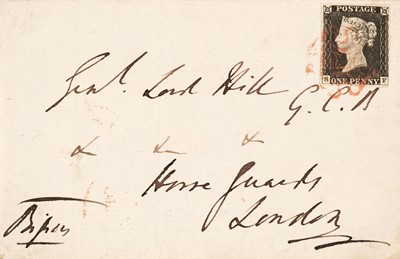 POSTAGE
ONE PENNY
Genl. Lord Hill
G.C.B
& & &
Horse Guards
London